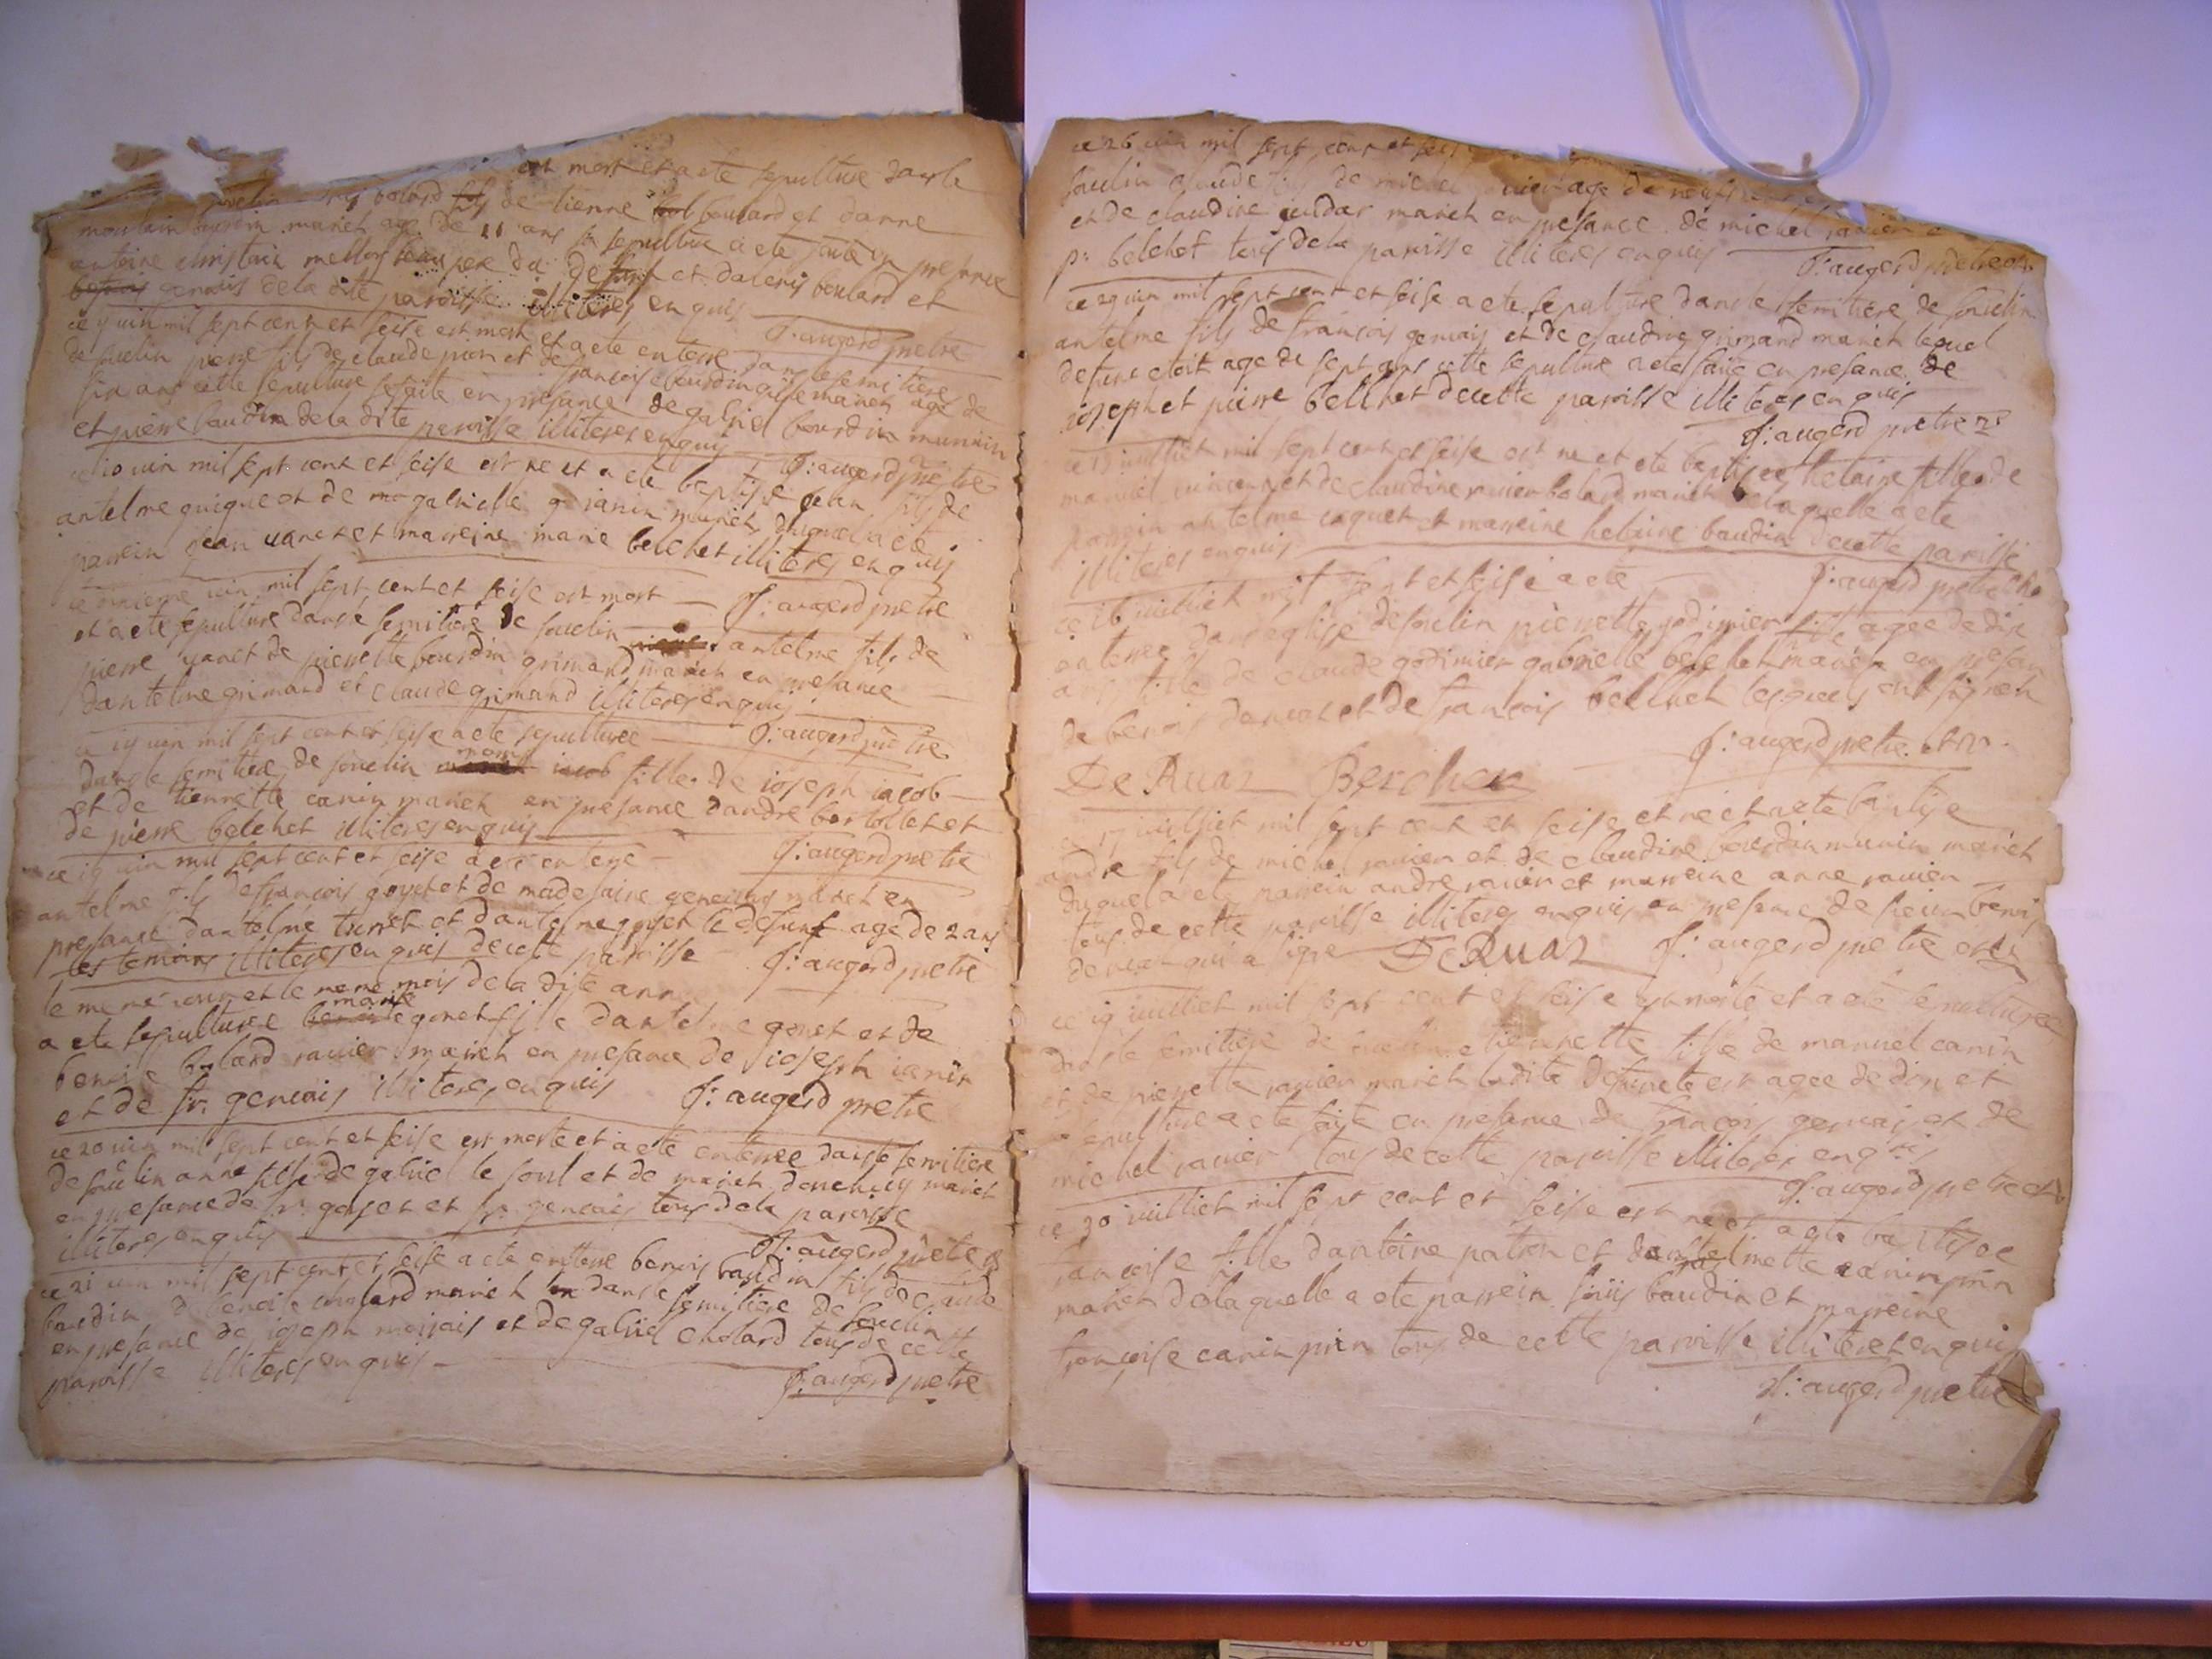 est mort et a ete sepulture dans le
bolard fils de tienne boulard et danne
moulain bourdin marieh age de 11 ans sa sepulture a ete faite en presance
antoine christain mellios beau pere du defunt et dalexis boulard et
gervais de la dite paroisse illiteres enquis
J: augerd pretre
ce 9 iuin mil sept cent et seise est mort et a ete enterre dans le semitiere
de souclin pierre fils de claude prin et de francoise bourdin marieh age de
six ans cette sepulture se faite en presance de gabriel bourdin munnin
et pierre baudin de la dite paroisse illiteres enquis
J: augerd pretre
ce 10 iuin mil sept cent et seise est ne et a ete baptise jean fils de
antelme guigue et de gabrielle ianin marieh duquel a ete
parrein jean vanet et marreine marie belchet illiteres enquis
J: augerd pretre
ce iuin mil sept cent et seise est mort
et a ete sepulture dans le semitiere de souclin antelme fils de
pierre vanet de pierrette bourdin grimand marieh en presance
dantelme grimand et claude grimand illiteres enquis
J: augerd pretre
ce 19 iuin mil sept cent et seise a ete sepulturee
dans le semitiere de souclin fille de ioseph iacob
et de tiennette canin marieh en presance dandre bertollet et
de pierre belchet illiteres enquis
J: augerd pretre
ce 19 iuin mil sept cent et seise a ete enterre
antelme fils de francois goyet et de madelaine gervais marieh en
presance dantelme trinet et dantelme goyet le defunt age de 2 ans
les temoins illiteres enquis de cette paroisse
J: augerd pretre
le meme iour et le meme mois de la dite anne
a ete sepulturee marie gonet fille dantelme gonet et de
benoite bolard ravier marieh en presance de ioseph ianin
et de fr: gervais illiteres enquis J: augerd pretre
ce 20 iuin mil sept cent et seise est morte et a ete enterree dans le semitiere
de souclin anne fille de gabriel le soul et de marieh
en presance de fr: goyet et fr: gervais tous de la paroisse
illiteres enquis
J: augerd pretre
ce 21 iuin mil sept cent et seise a ete enterre benois baudin fils de claude
baudin de benoite cholard marieh dans le semitiere de souclin
en presance de ioseph et de gabriel cholard tous de cette
paroisse illiteres enquis
J: augerd pretre
ce 26 iuin mil sept cent et seise
soulin claude fils de michel ravier age de neuf
et de claudine iuidar marieh en presance de michel ravier
p: belchet tous de la paroisse illiteres enquis
J: augerd pretre
ce 29 iuin mil sept cent et seise a ete sepulture dans le semitiere de souclin
antelme fils de francois gervais et de claudine grimand marieh lequel
defunt etoit age de sept ans cette sepulture a ete faite en presance de
ioseph et pierre bellchet de cette paroisse illiteres enquis
J: augerd pretre
ce 15 iuilliet mil sept cent et seise est ne et ete baptisee helaine fille de
manuel et de claudine ravier bolard marieh de laquelle a ete
parrein antelme coquet et marreine helaine baudin de cette paroisse
illiteres enquis
J: augerd pretre
ce 16 iuilliet mil sept et seise a ete
enterree dans eglise de souclin pierrette godimier fille agee de dix
ans fille de claude godimier gabrielle belchet marieh en presan
de benois deruaz et de francois bellchet lesquels ont signeh
J: augerd pretre
De Ruaz Bercher
ce 17 iuilliet mil sept cent et seise et ne et a ete baptise
andre fils de michel ravier et de claudine bourdin munin marieh
duquel a ete parrein andre ravier et marreine anne ravier
tous de cette paroisse illiteres enquis en presence de sieur benois
deruaz qui a signe De Ruaz J: augerd pretre
ce 19 iuilliet mil sept cent et seise morte et a ete sepulturee
dans le semitiere de souclin etiennette fille de manuel canin
et de pierrette ravier marieh ladite defunte est agee de dix et
sepulture a ete faite en presence de francois gervais et de
michel ravier tous de cette paroisse illiteres enquis
J: augerd pretre
ce 30 iuilliet mil sept cent et seise est ne et a ete baptisee
francoise fille dantoine patron et dantelmette canin prin
marieh de laquelle a ete parrein baudin et marreine
francoise canin prin tous de cette paroisse illiteres enquis
J: augerd pretre